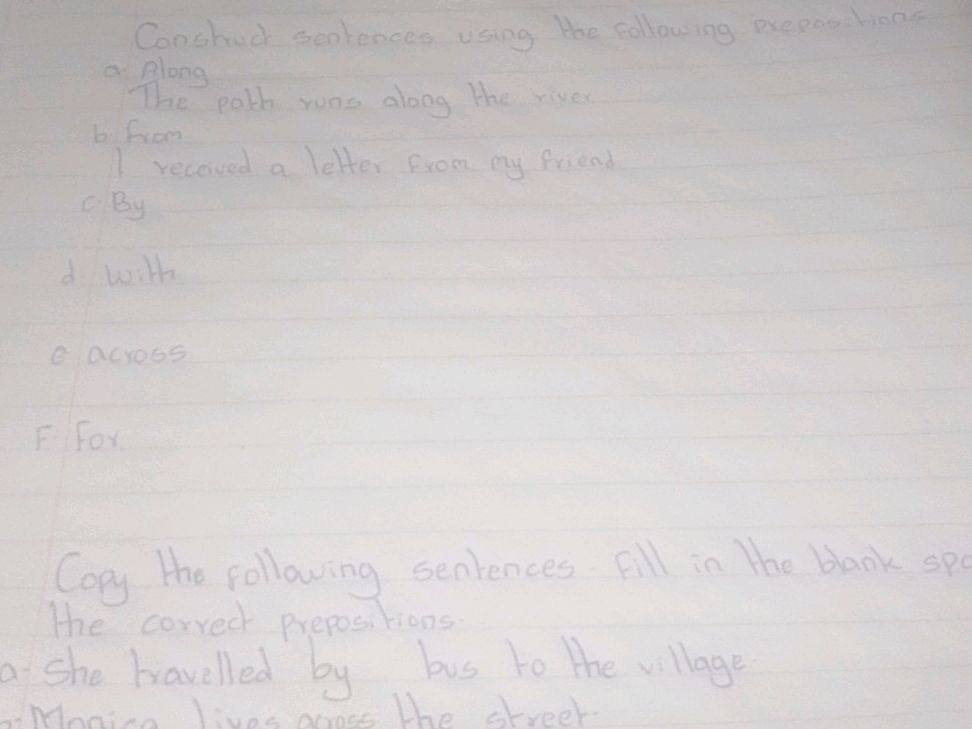 Construct sentences using the following prepositions
a. Along
The path runs along the river
b. from
I received a letter from my friend
c. By
d. with
e across
F. For
Copy the following sentences. Fill in the blank
the correct prepositions.
a. She travelled by bus to the village.
Monica lives across the street.